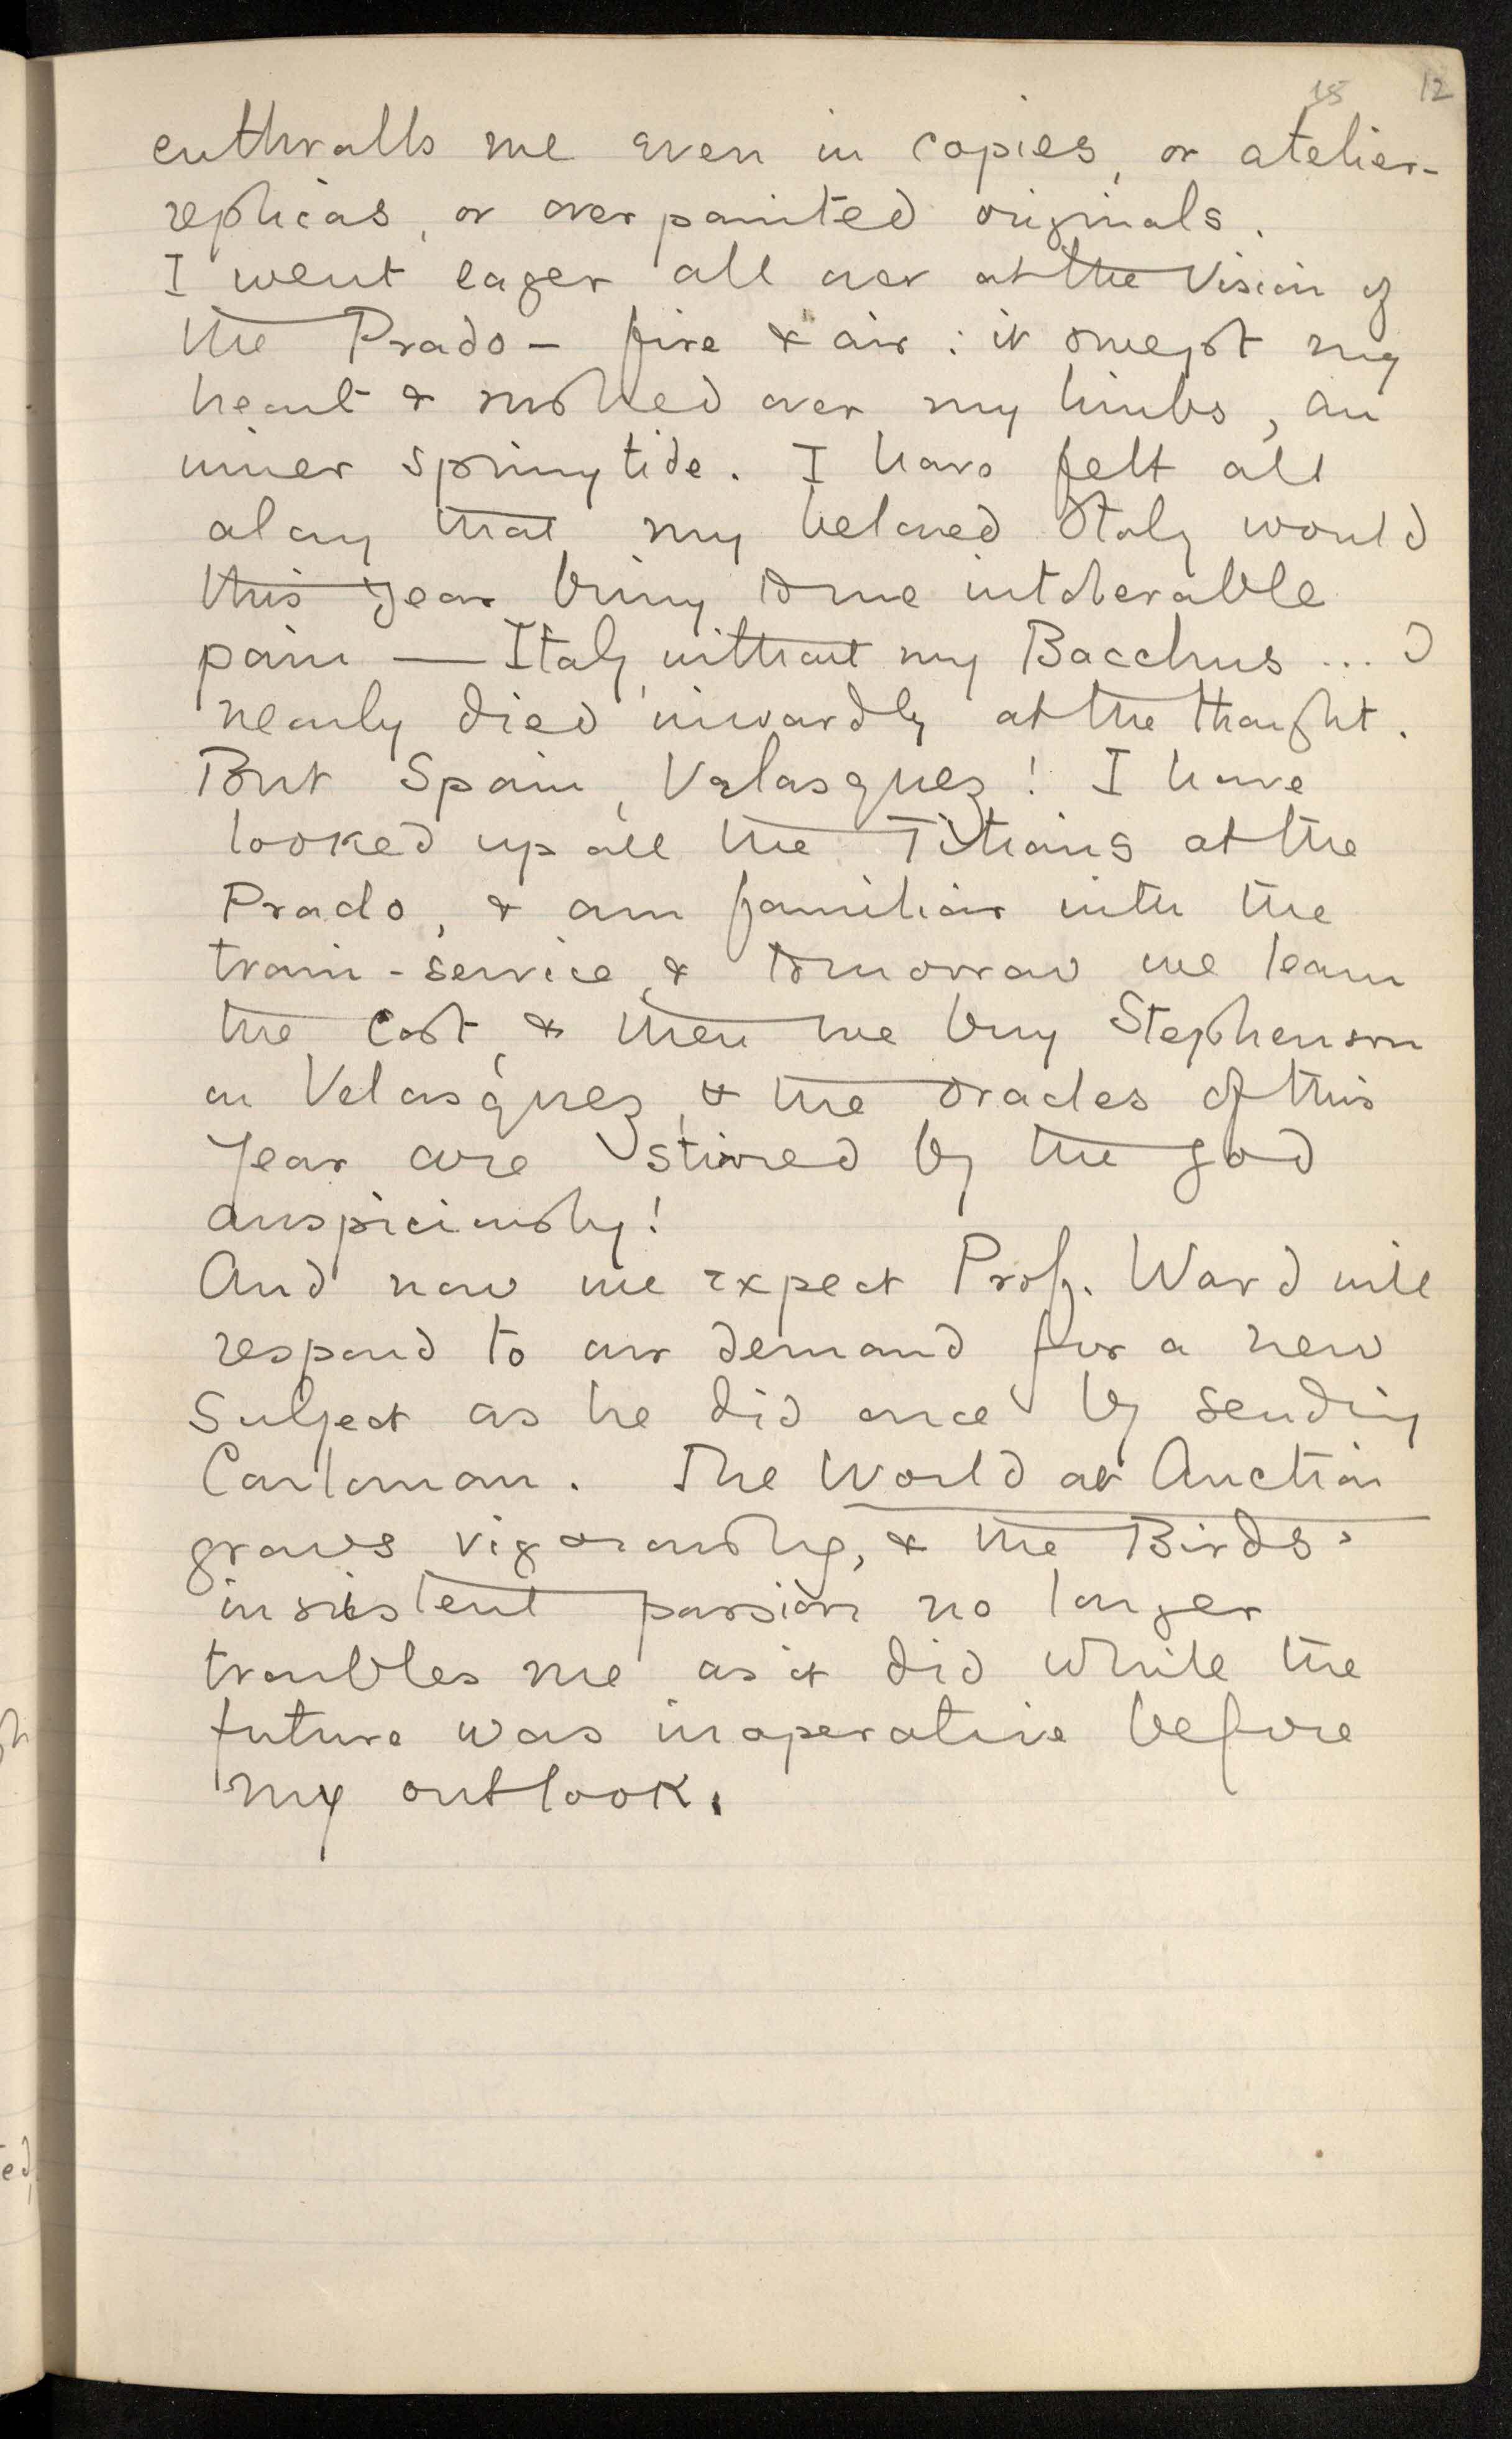 15 12
enthralls me even in copies, or atelier-
replicas, or overpainted originals.
I went eager all over at the Vision of
the Prado — fire & air : it swept my
heart & rushed over my limbs, an
inner springtide. I have felt all
along that my beloved Italy would
this year bring to me intolerable
pain — Italy without my Bacchus ... I
nearly died inwardly at the thought.
But Spain, Velasquez! I have
looked up all the Titians at the
Prado, & am familiar with the
train-service, & tomorrow we learn
the cost, & then we buy Stephenson
on Velasquez, & the oracles of this
year are stirred by the god
auspiciously!
And now we expect Prof. Ward will
respond to our demand for a new
Subject as he did once by sending
Carloman. The World at Auction
grows vigorously, & the Birds'
insistent passion no longer
troubles me as it did while the
future was inoperative before
my outlook.